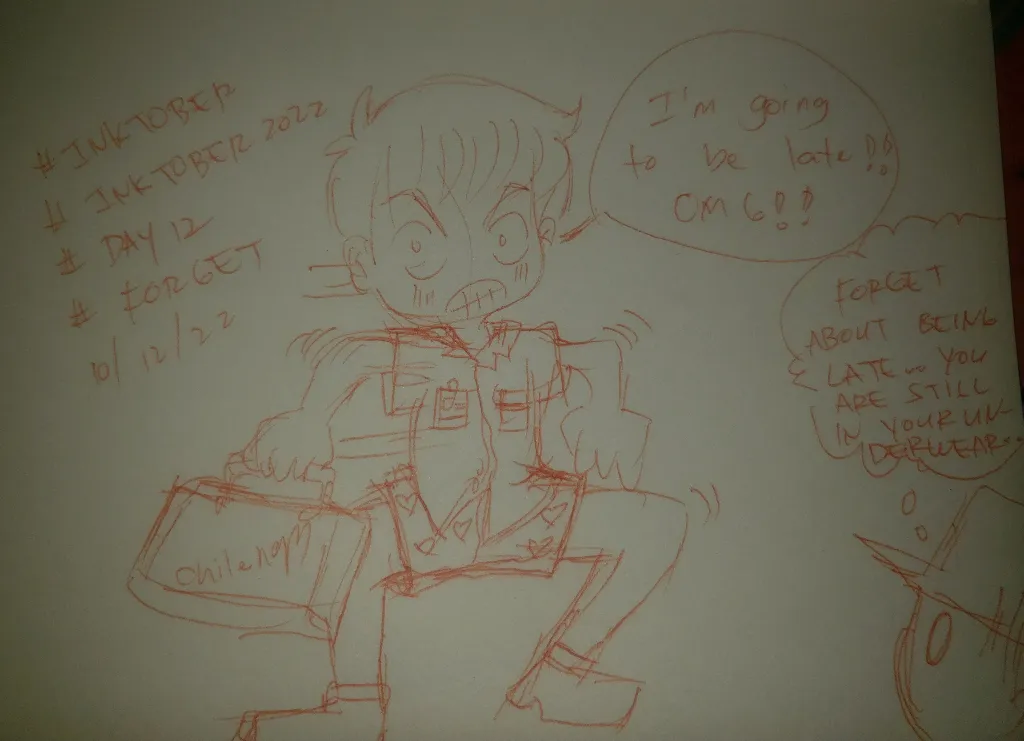 # INKTOBER
# INKTOBER 2022
# DAY 12
# FORGET
10/12/22
I'm going
to be late!!
OMG!!
FORGET
ABOUT BEING
LATE... YOU
ARE STILL
IN YOUR UN-
DERWEAR...